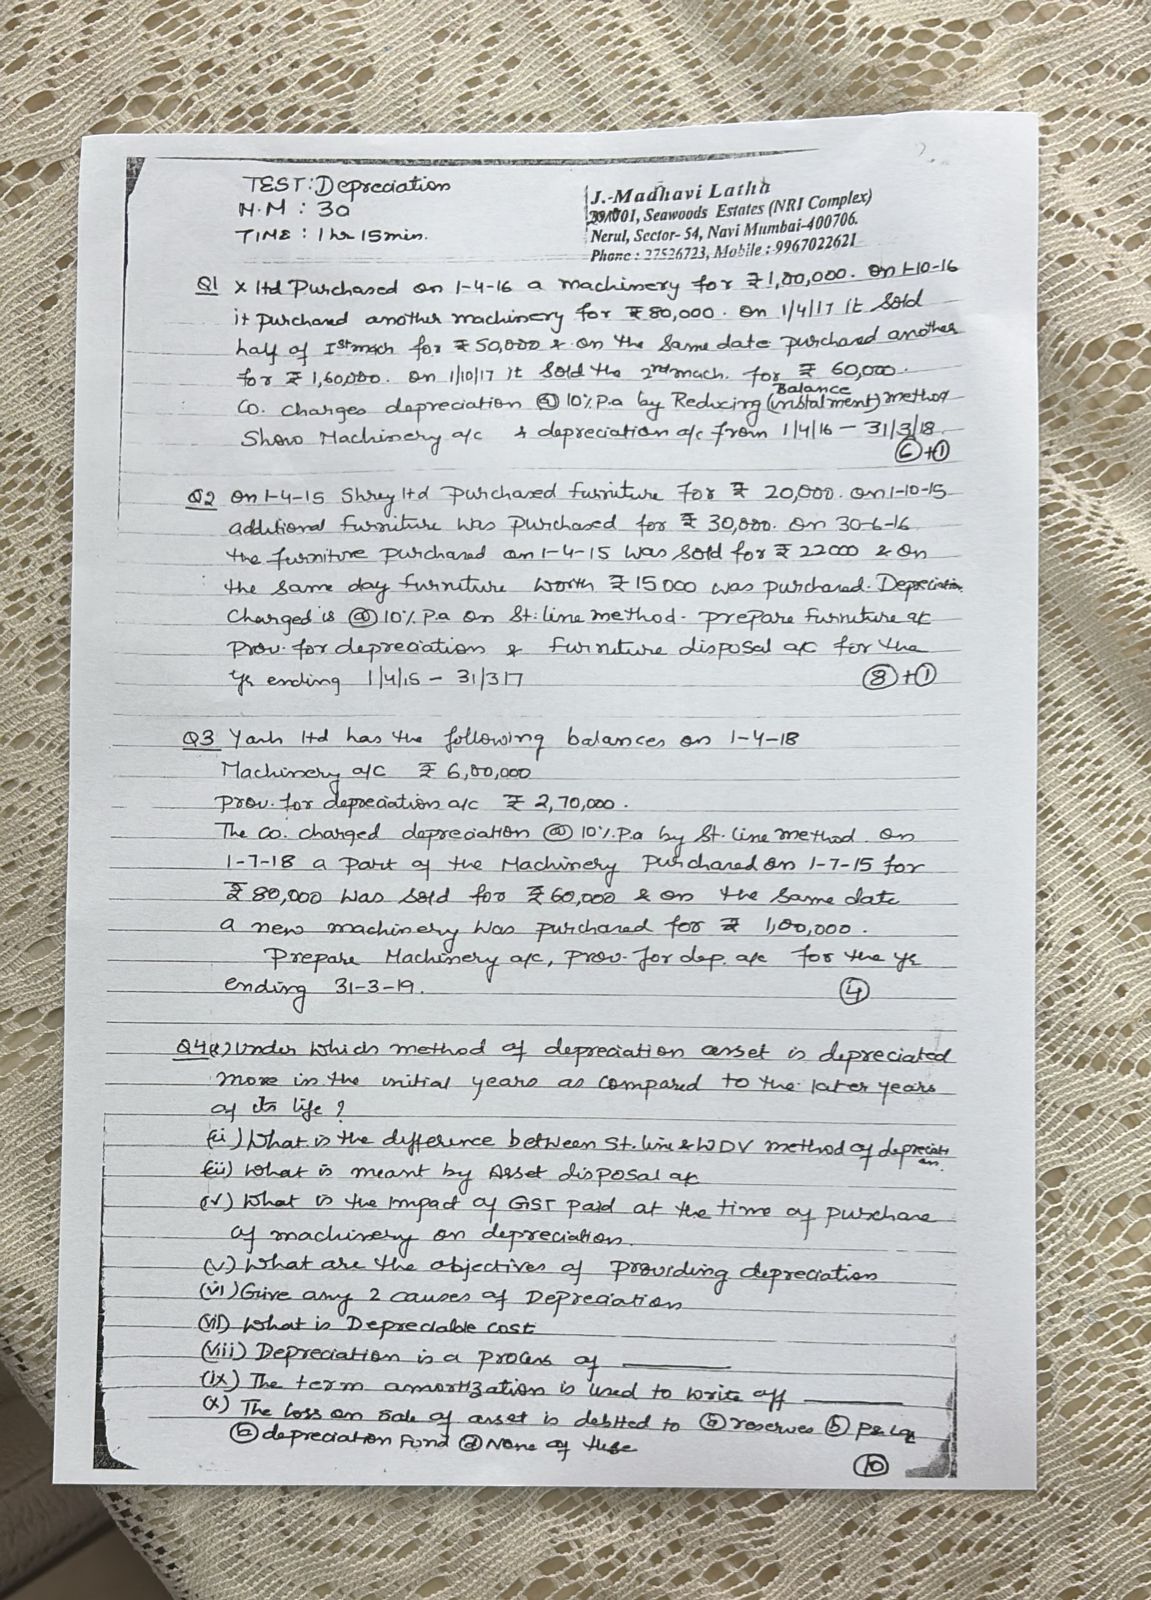 TEST: Depreciation
M.M : 30
TIME : 1 hr 15min.
J.-Madhavi Latha
Seawoods Estates (NRI Complex)
Nerul, Sector-54, Navi Mumbai-400706.
Phone : 27526723, Mobile : 9967022621
Q1 X ltd Purchased on 1-4-16 a machinery for ₹1,00,000. on 1-10-16
it purchased another machinery for ₹80,000. on 1/4/17 it sold
half of Ist mach for ₹50,000 & on the same date purchased another
for ₹1,60,000. on 1/10/17 it sold the 2nd mach. for ₹ 60,000.
Co. charges depreciation @ 10% P.a by Reducing Balance (instalment) method
Show Machinery a/c & depreciation a/c from 1/4/16 – 31/3/18.
6+1
Q2 On 1-4-15 Shrey ltd purchased furniture for ₹ 20,000. on 1-10-15
additional furniture was purchased for ₹ 30,000. on 30-6-16
the furniture purchased on 1-4-15 was sold for ₹ 22000 & on
the same day furniture worth ₹ 15000 was purchased. Depreciation
Charged is @ 10% P.a on St. line method. prepare furniture a/c
Prov. for depreciation & furniture disposal a/c for the
yr ending 1/4/15 – 31/3/17
8+1
Q3 Yash ltd has the following balances on 1-4-18
Machinery a/c ₹ 6,00,000
Prov. for depreciation a/c ₹ 2,70,000.
The co. charged depreciation @ 10% P.a by St. line method. On
1-7-18 a part of the Machinery Purchased on 1-7-15 for
₹ 80,000 was sold for ₹60,000 & on the same date
a new machinery was purchased for ₹ 1,00,000.
Prepare Machinery a/c, prov. for dep. a/c for the yr
ending 31-3-19.
4
Q4 (i) Under which method of depreciation asset is depreciated
more in the initial years as compared to the later years
of its life ?
(ii) What is the difference between St. line & WDV method of depreciation.
(iii) What is meant by Asset disposal a/c
(iv) What is the impact of GST paid at the time of purchase
of machinery on depreciation.
(v) What are the objectives of providing depreciation
(vi) Give any 2 causes of Depreciation
(vii) What is Depreciable cost
(viii) Depreciation is a process of ______
(ix) The term amortization is used to write off ______
(x) The loss on sale of asset is debited to (a) reserves (b) P&L a/c
(c) depreciation Fund (d) None of these
10